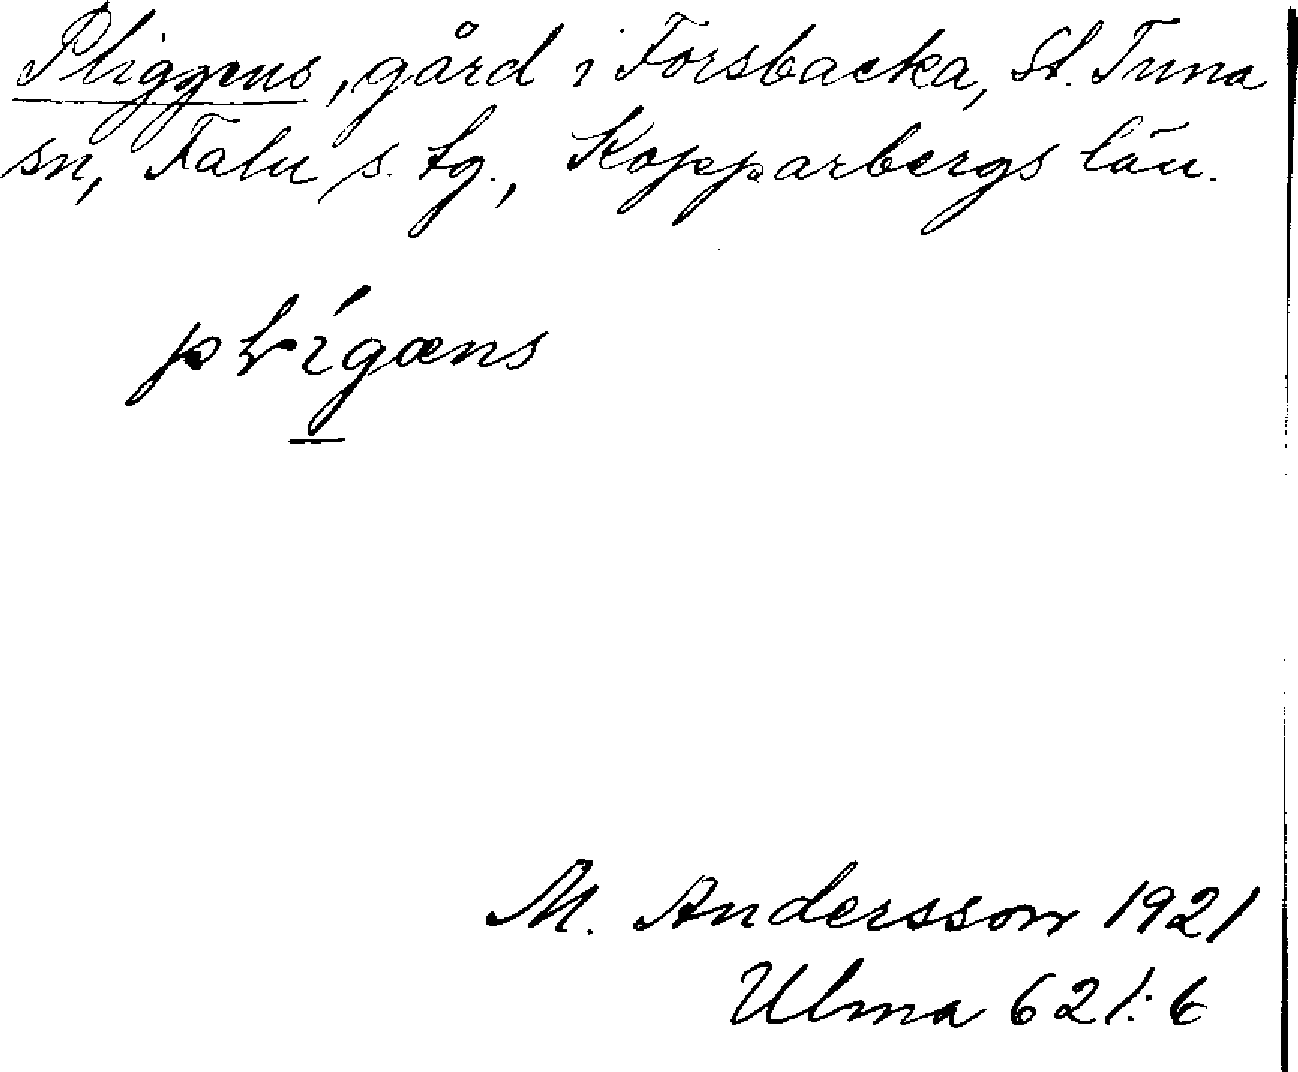 Pliggens, gård i Forsbacka, St. Tuna
sn, Falu s. tg., Kopparbergs län.
M. Andersson 1921
Ulma 621:6